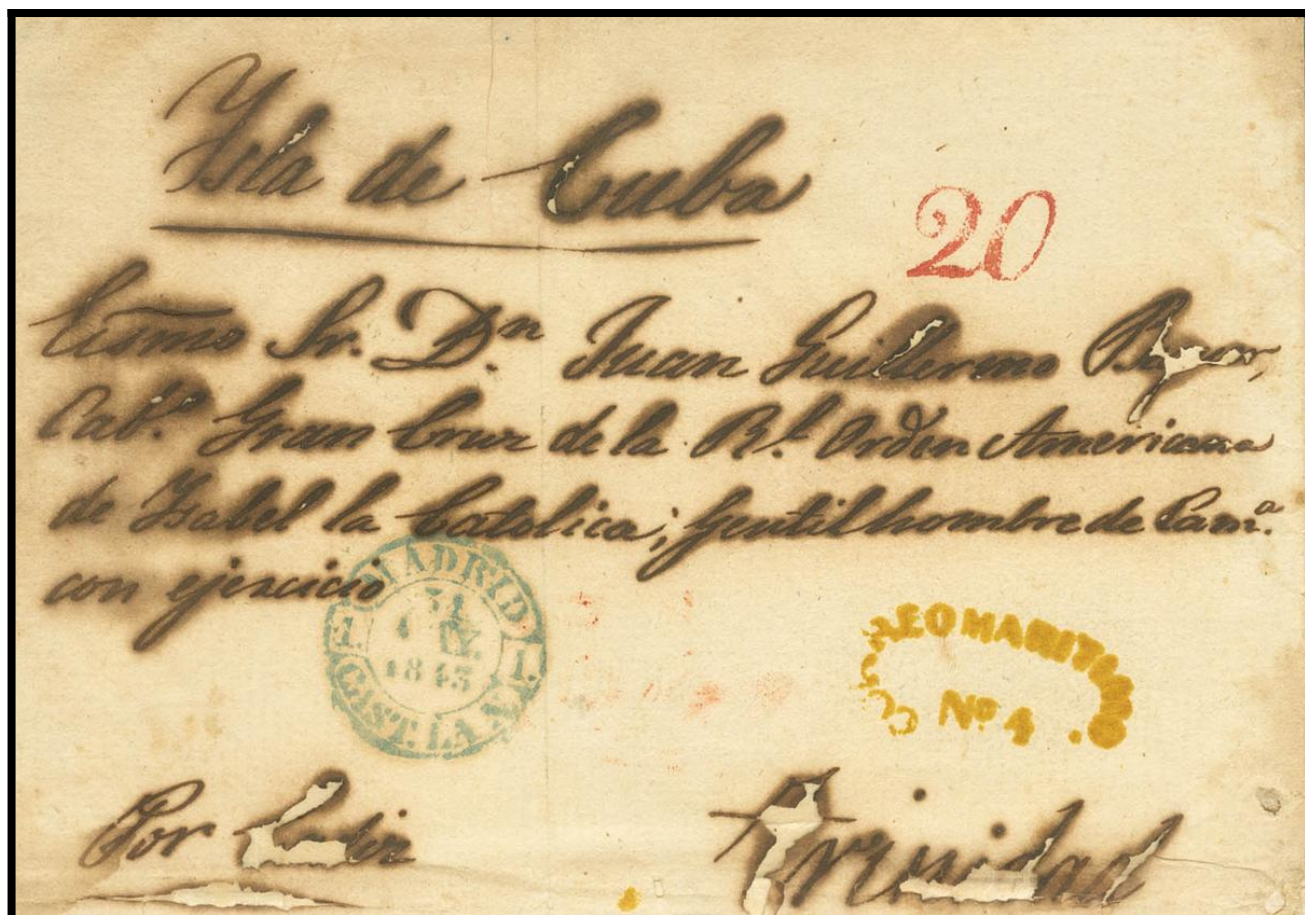 Ysla de Cuba
20
Exmo Sr. Dn Juan Guillermo
Cab.o Gran Cruz de la Rl. Orden Americana
de Ysabel la Catolica; Gentilhombre de Cam.a
con ejercicio
MADRID
1. 1.
1843
CAST. LA N.
CORREO MARITIMO
No 4
Por Cadiz
Trinidad